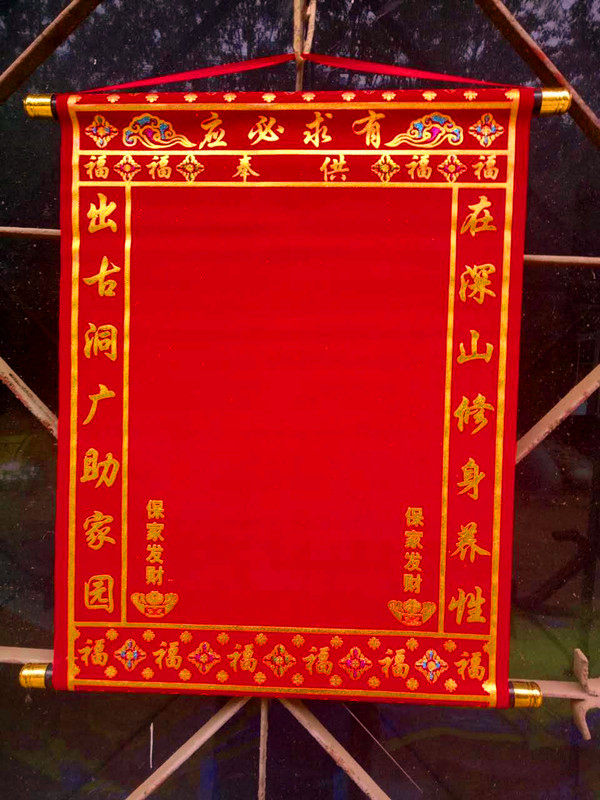 有求必应
福 福 供奉 福 福
在深山修身养性
出古洞广助家园
保家发财
保家发财
福 福 福 福 福 福